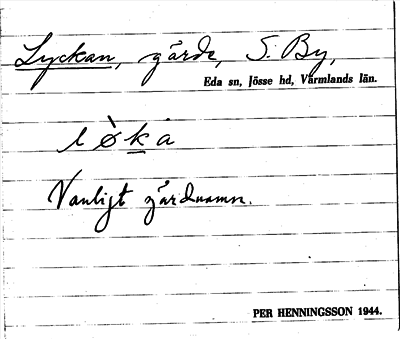 Lyckan, gärde, S. By,
Eda sn, Jösse hd, Värmlands län.
lø̀ka
Vanligt gärdnamn.
PER HENNINGSSON 1944.